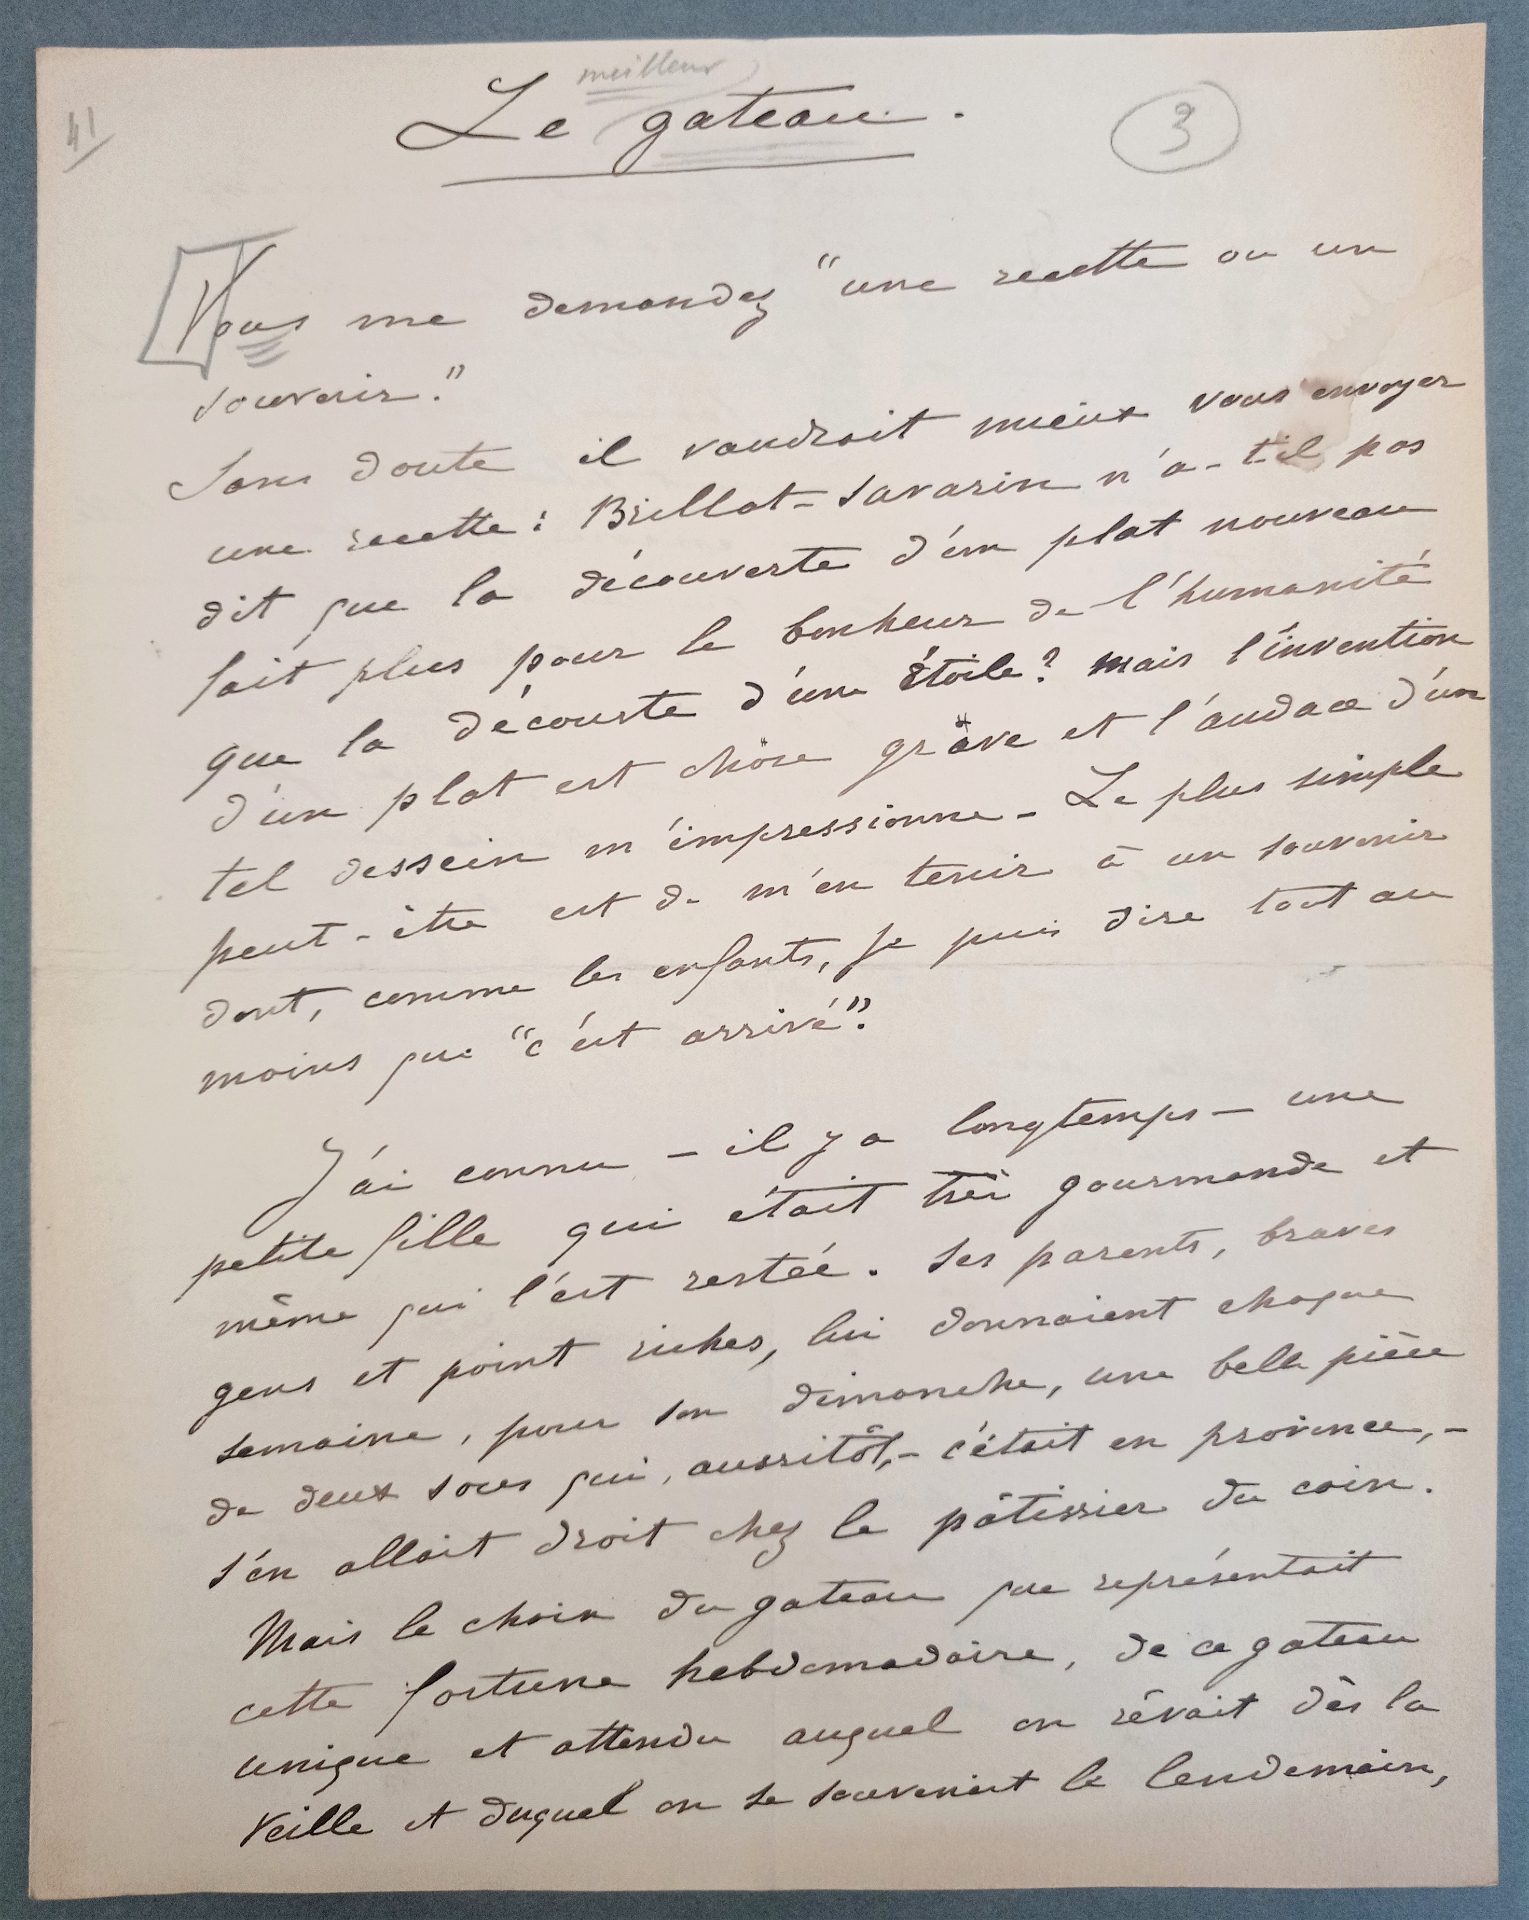 meilleur
41
Le gateau.
3
Vous me demandez "une recette ou un
souvenir."
Sans doute il vaudrait mieux vous envoyer
une recette : Brillat-Savarin n'a-t-il pas
dit que la découverte d'un plat nouveau
fait plus pour le bonheur de l'humanité
que la découverte d'une étoile ? mais l'invention
d'un plat est chose grave et l'audace d'un
tel dessein m'impressionne - Le plus simple
peut-être est de m'en tenir à un souvenir
dont, comme les enfants, je puis dire tout au
moins que "c'est arrivé".
J'ai connu - il y a longtemps - une
petite fille qui était très gourmande et
même qui l'est restée. Ses parents, braves
gens et point riches, lui donnaient chaque
semaine, pour son dimanche, une belle pièce
de deux sous qui, aussitôt, - c'était en province, -
s'en allait droit chez le pâtissier du coin.
Mais le choix du gateau que représentait
cette fortune hebdomadaire, de ce gateau
unique et attendu auquel on rêvait dès la
veille et duquel on se souvenait le lendemain,